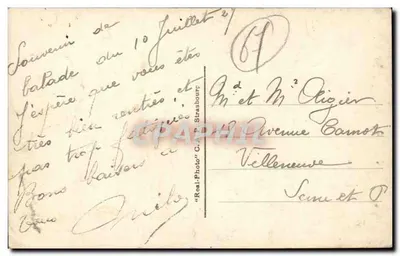 Souvenir de
balade du 10 Juillet
J'espère que vous êtes
très bien rentrés et
pas trop fatigués
Bons baisers à
tous
67
"Real-Photo" C. Strasbourg
CARTAPHILIA
Md et Mr Aigier
18 Avenue Carnot
Villeneuve
Seine et